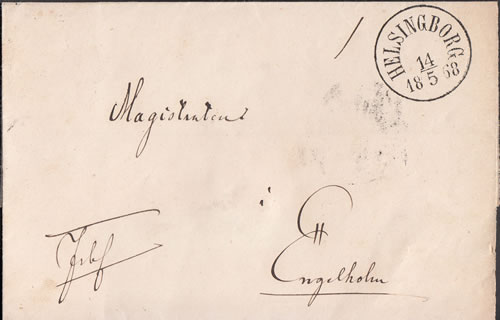 HELSINGBORG
14/5
18 68
Magistraten
i
Engelholm